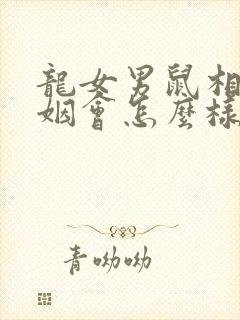 龍女男鼠相
姻會怎麼樣
青呦呦